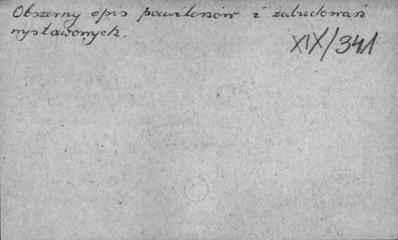 Obszerny opis pawilonów i zabudowań
wystawowych.
XIX/341